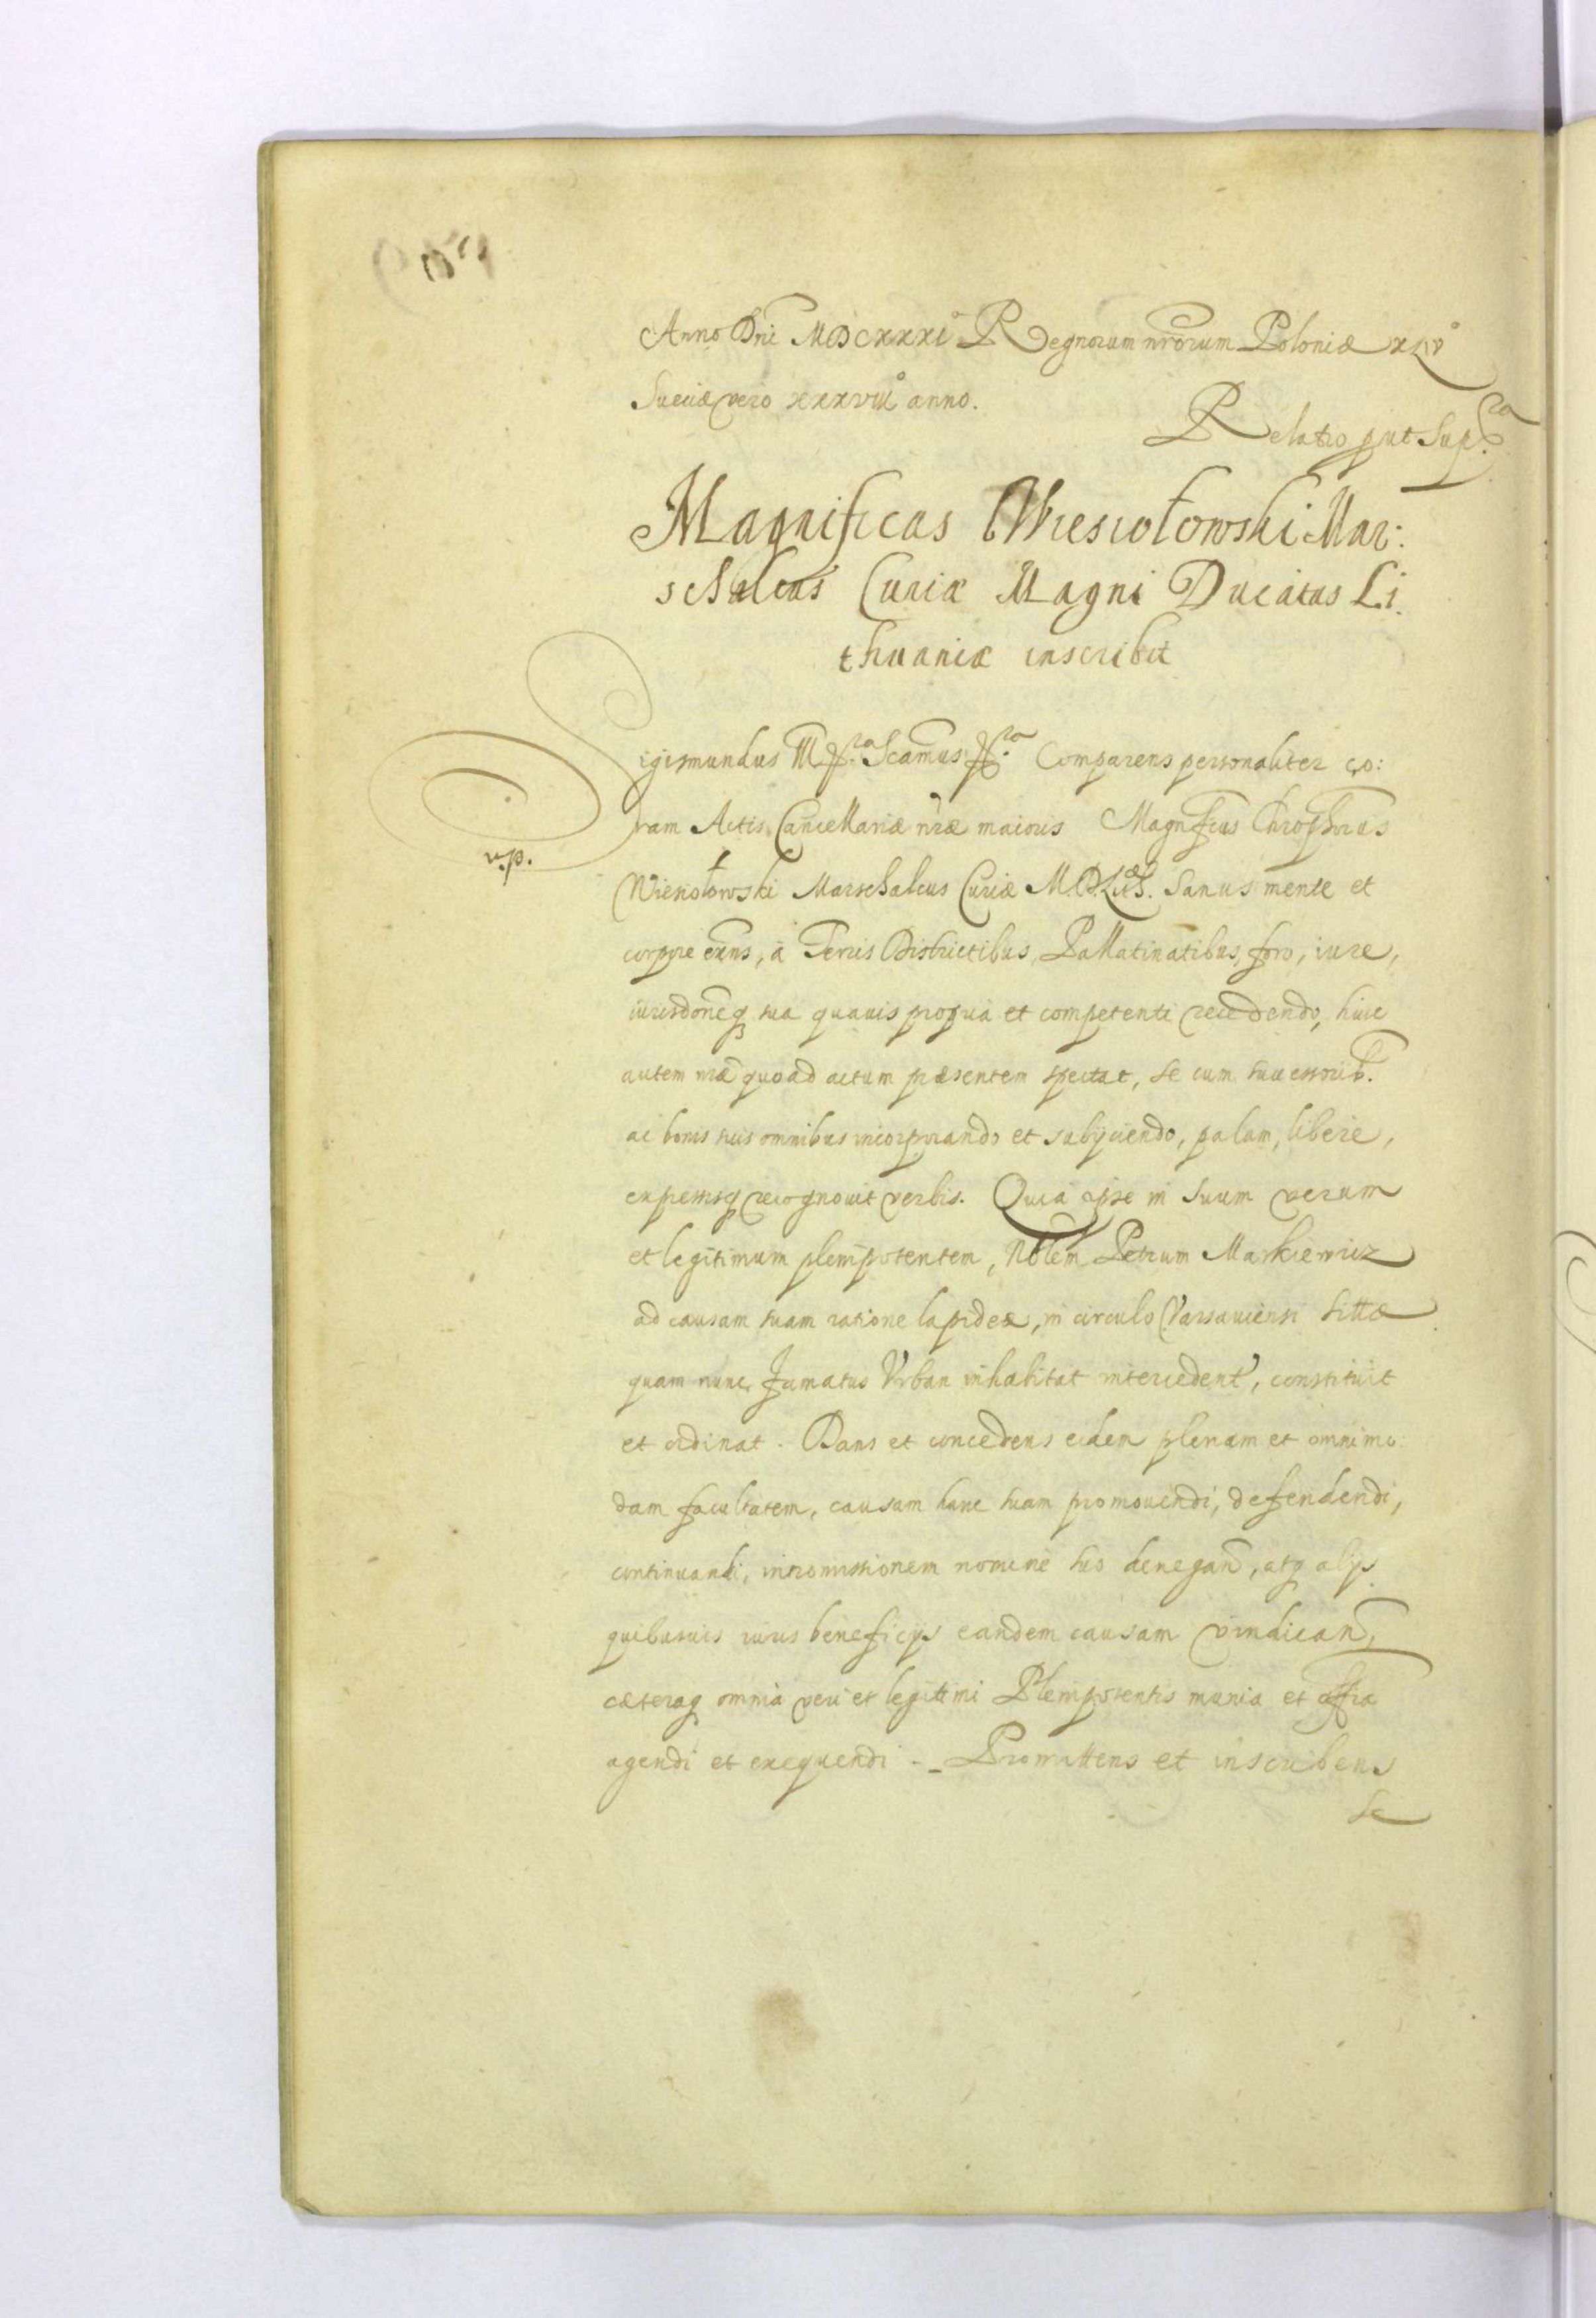 Anno Dni MDCXXXI° Regnorum nrorum Poloniæ XLIV°
Sueciæ vero XXXVIII° anno.
Relatio put supra
Magnificus Wiesiołowski Mar:
schalcus Curiæ Magni Ducatus Li
thuaniæ inscribit
Sigismundus III Scamus Comparens personaliter co:
ram Actis Cancellariæ nræ maioris Magnificus Chrophorus
v.p.
Wiesiołowski Marschalcus Curiæ M.D.Lith. Sanus mente et
corpore exns, à Terris Districtibus, Pallatinatibus, foro, iure,
iurisdoneq sua quauis propria et competenti recedendo, huic
autem nræ quoad actum præsentem spectat, se cum successorib.
ac bonis suis omnibus incorporando et subijciendo, palam, libere,
expressisq recognouit verbis. Quia ipse in Suum verum
et legitimum plenipotentem, Nblem Petrum Markiewicz
ad causam suam ratione lapideæ, in circulo Varsauiensi sittæ
quam nunc Famatus Urban inhabitat intercedent, constituit
et ordinat. Dans et concedens eidem plenam et omnimo:
dam facultatem, causam hanc suam promouendi, defendendi,
continuandi, intromissionem nomine suo denegand, atq alijs
quibusuis iuris beneficijs eandem causam vindicand,
cæteraq omnia veri et legittimi Plenipotentis munia et offia
agendi et exequendi. Promittens et inscribens
se